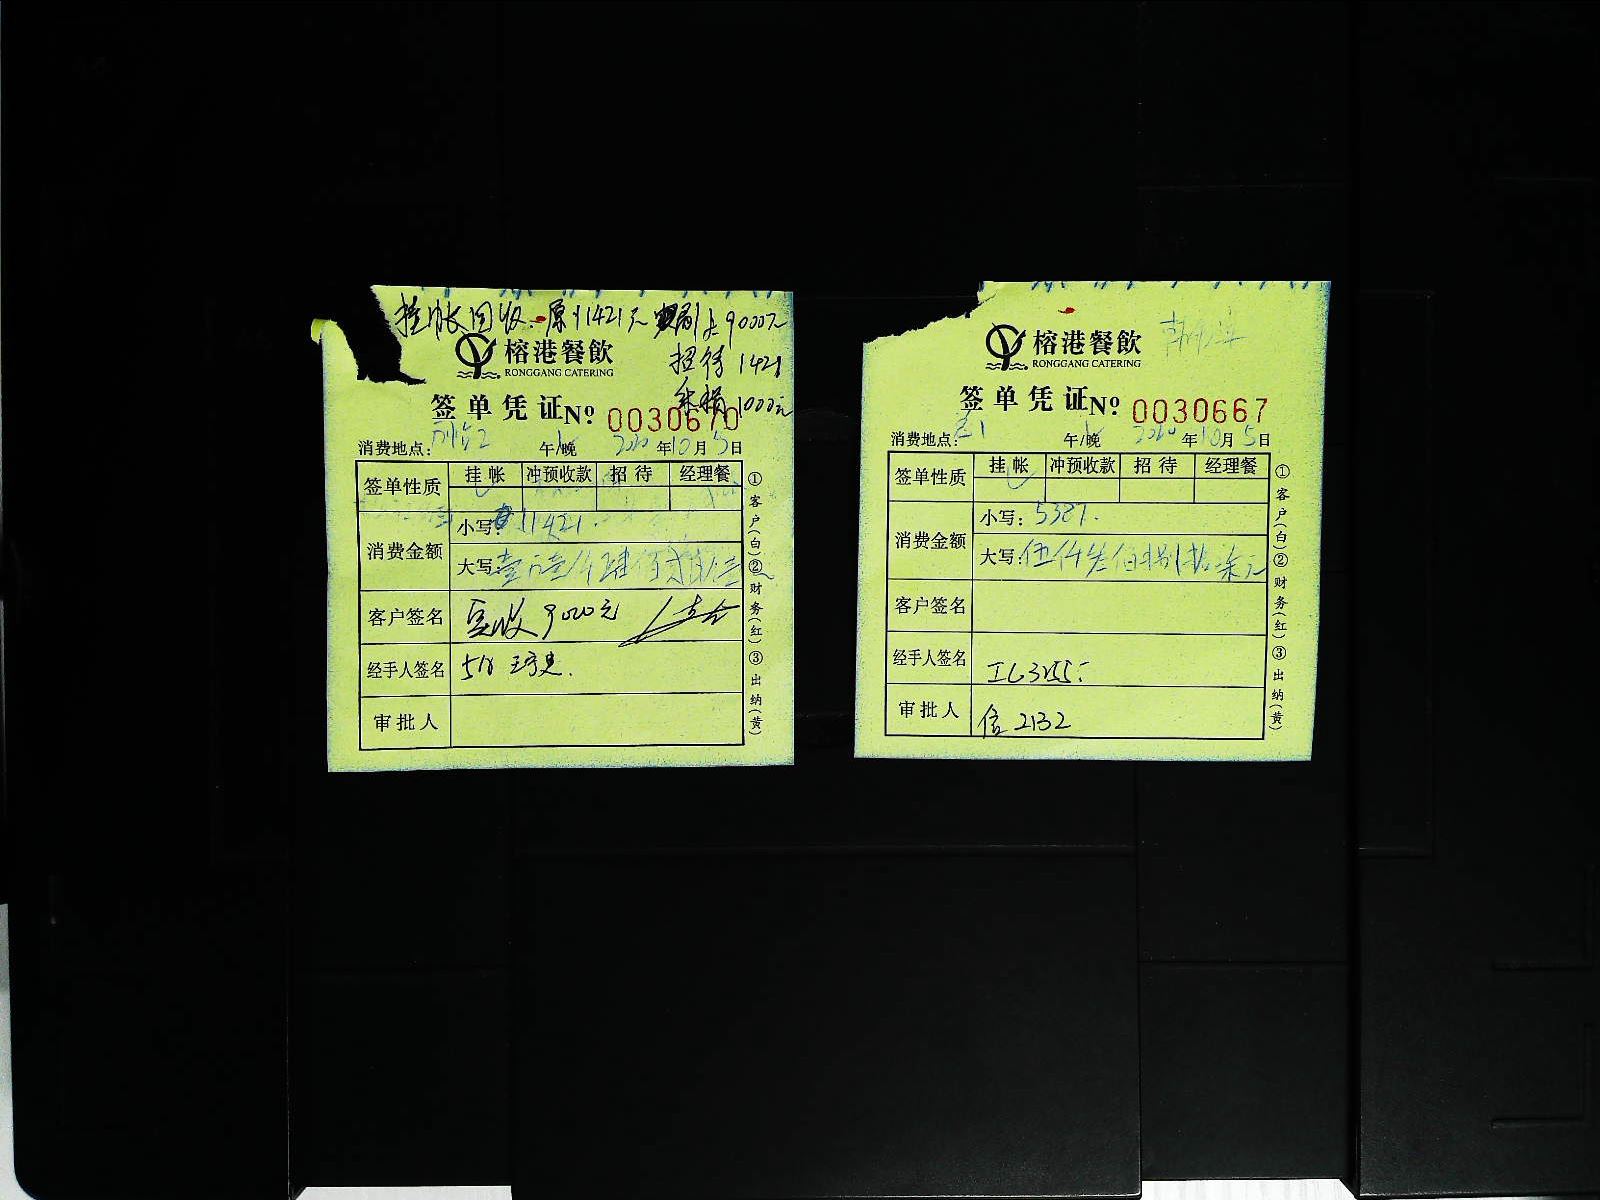 挂帐回收 原¥11421元
9000元
招待 1421
1000元
榕港餐飲
RONGGANG CATERING
签单凭证 № 0030670
消费地点： 午/晚 2020年10月5日
签单性质 挂帐 冲预收款 招待 经理餐
消费金额 小写：11421.
大写：壹万壹仟肆佰贰拾
客户签名 实收9000元
经手人签名 518
审批人
①客户(白)②财务(红)③出纳(黄)
榕港餐飲
RONGGANG CATERING
签单凭证 №: 0030667
消费地点： 午/晚 2020年10月5日
签单性质 挂帐 冲预收款 招待 经理餐
消费金额 小写：5387.
大写：伍仟叁佰捌拾柒元
客户签名
经手人签名
审批人 信2132
①客户(白)②财务(红)③出纳(黄)